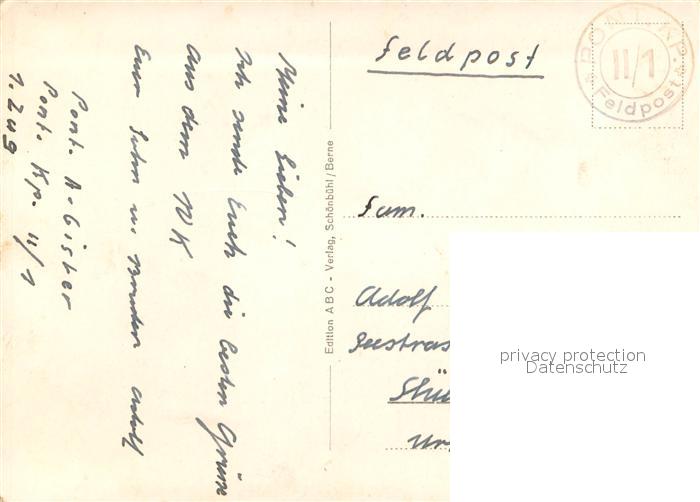 Meine Lieben!
Ich sende Euch die besten Grüsse
aus dem WK
Euer Sohn u. Bruder Adolf
Pont. A. Bisher
Pont. Kp. II/1
1. Zug
Edition ABC - Verlag, Schönbühl/Berne
Feldpost
PONT. KP.
II/1
Feldpost
Fam.
Adolf
Seestras
privacy protection
Datenschutz